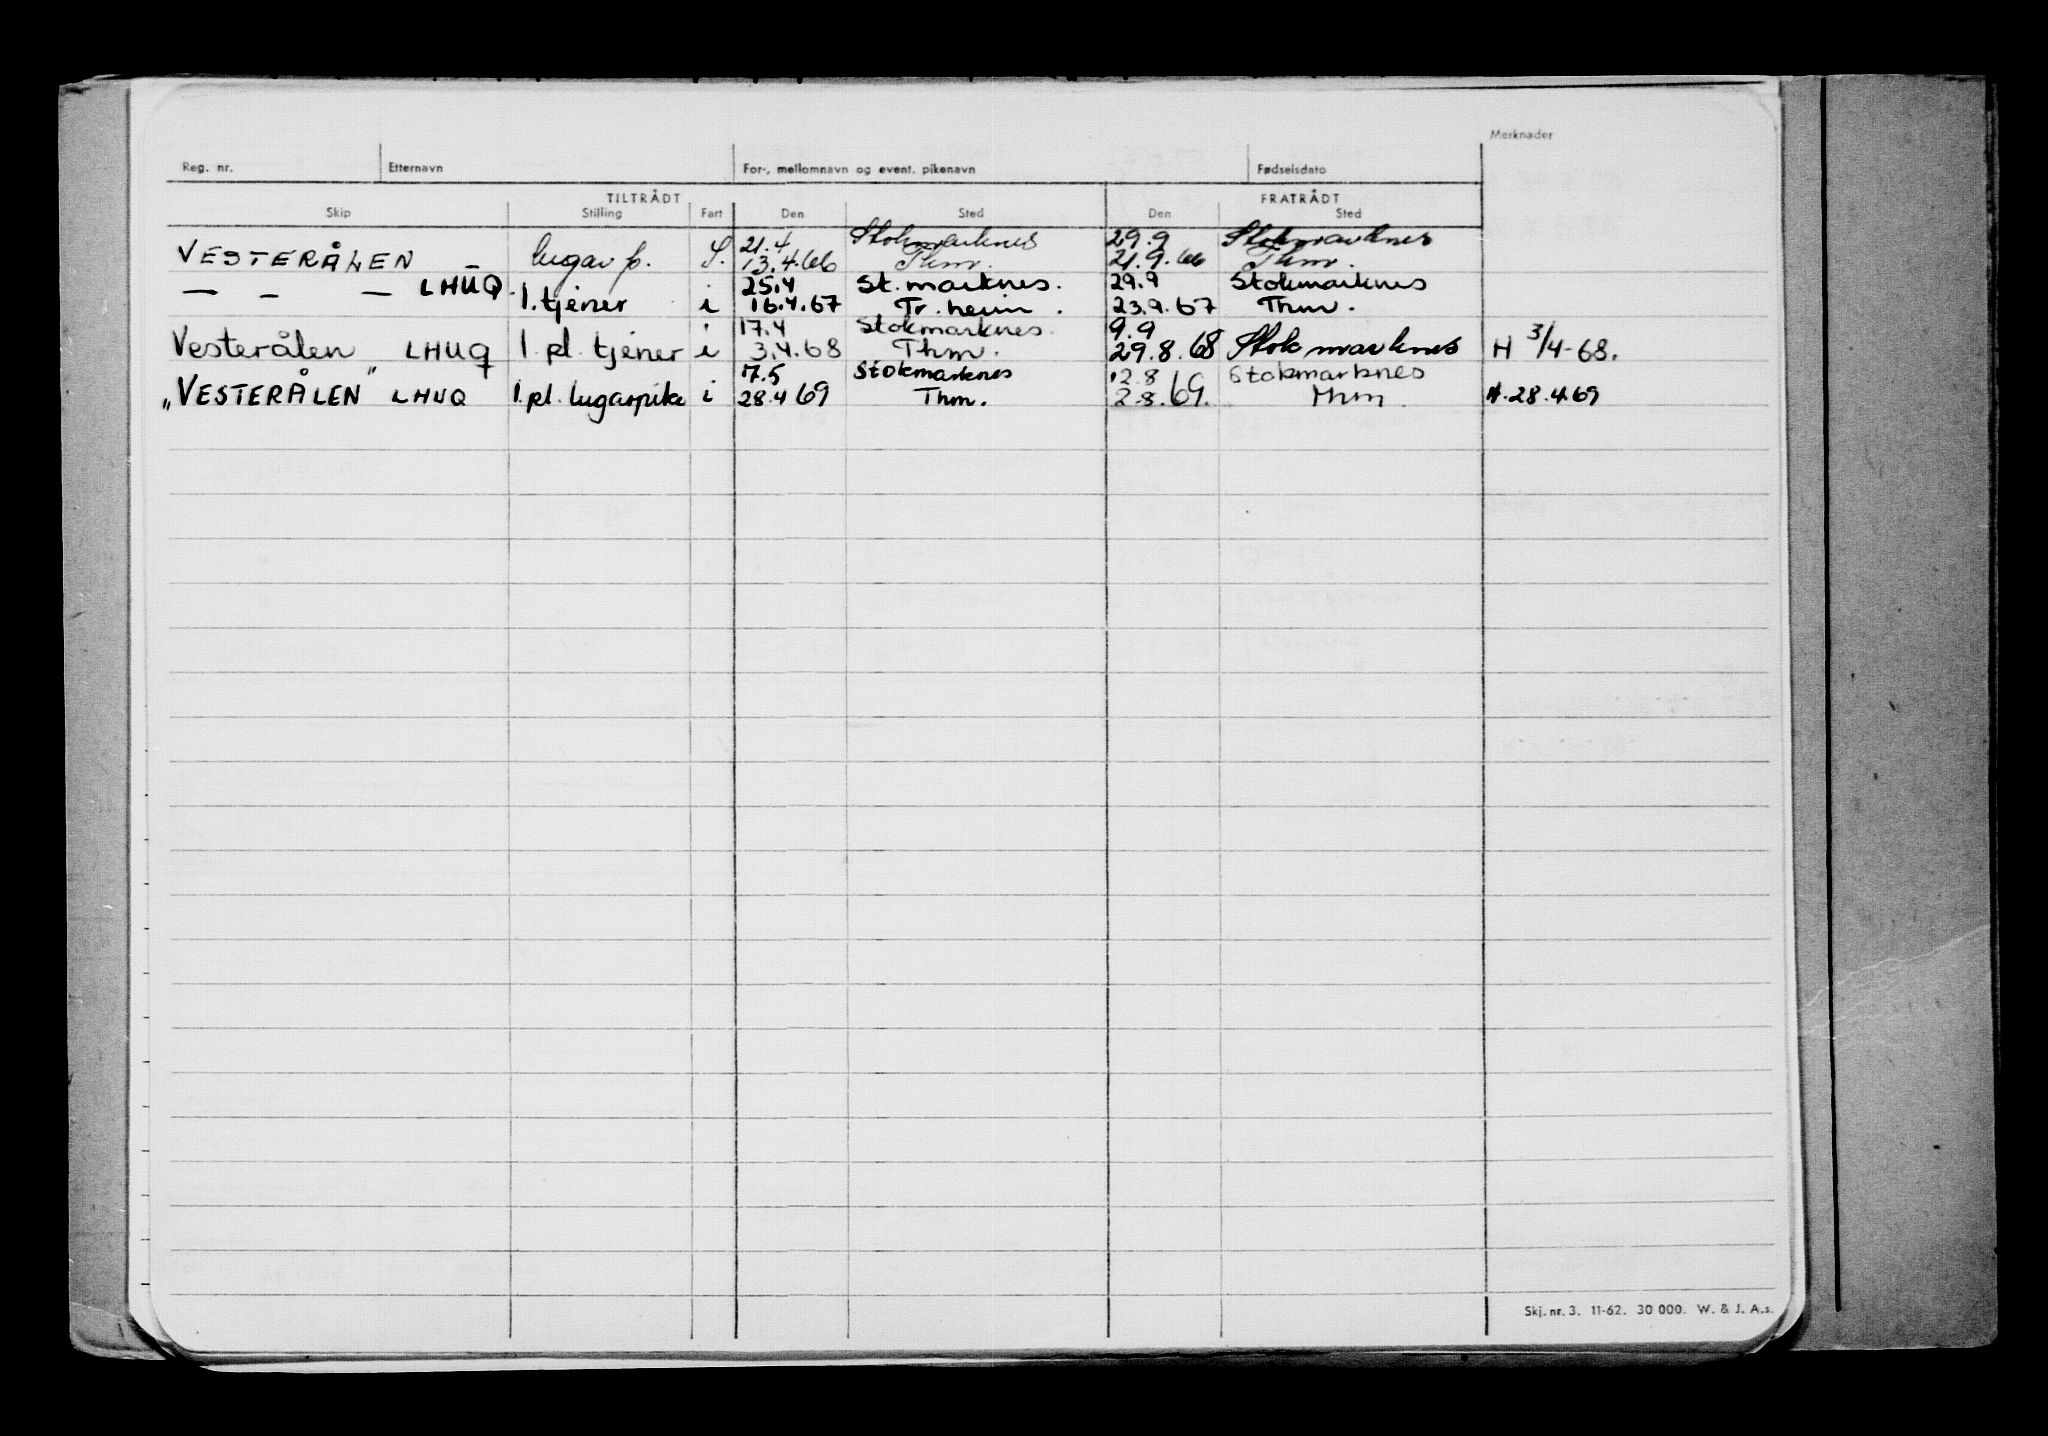 Merknader
Reg. nr. Etternavn For-, mellomnavn og event. pikenavn Fødselsdato
TILTRÅDT FRATRÅDT
Skip Stilling Fart Den Sted Den Sted
21.4 Stokmarknes 29.9 Stokmarknes
VESTERÅLEN lugar p. 13.4.66 Thm. 21.9.66 Thm.
LHUQ. 25.4 St. marknes. 29.9 Stokmarknes
— – — 1. tjener i 16.4.67 Tr. heim. 23.9.67 Thm.
i 17.4 Stokmarknes. 9.9
Vesterålen LHUQ 1 pl. tjener i 3.4.68 Thm. 29.8.68 Stokmarknes H 3/4-68.
7.5 Stokmarknes 12.8 Stokmarknes
„VESTERÅLEN" LHUQ 1.pl. lugarpike i 28.4 69 Thm. 2.8.69. Thm. H.28.4.69
Skj. nr. 3. 11-62. 30 000. W. & J. A.s.